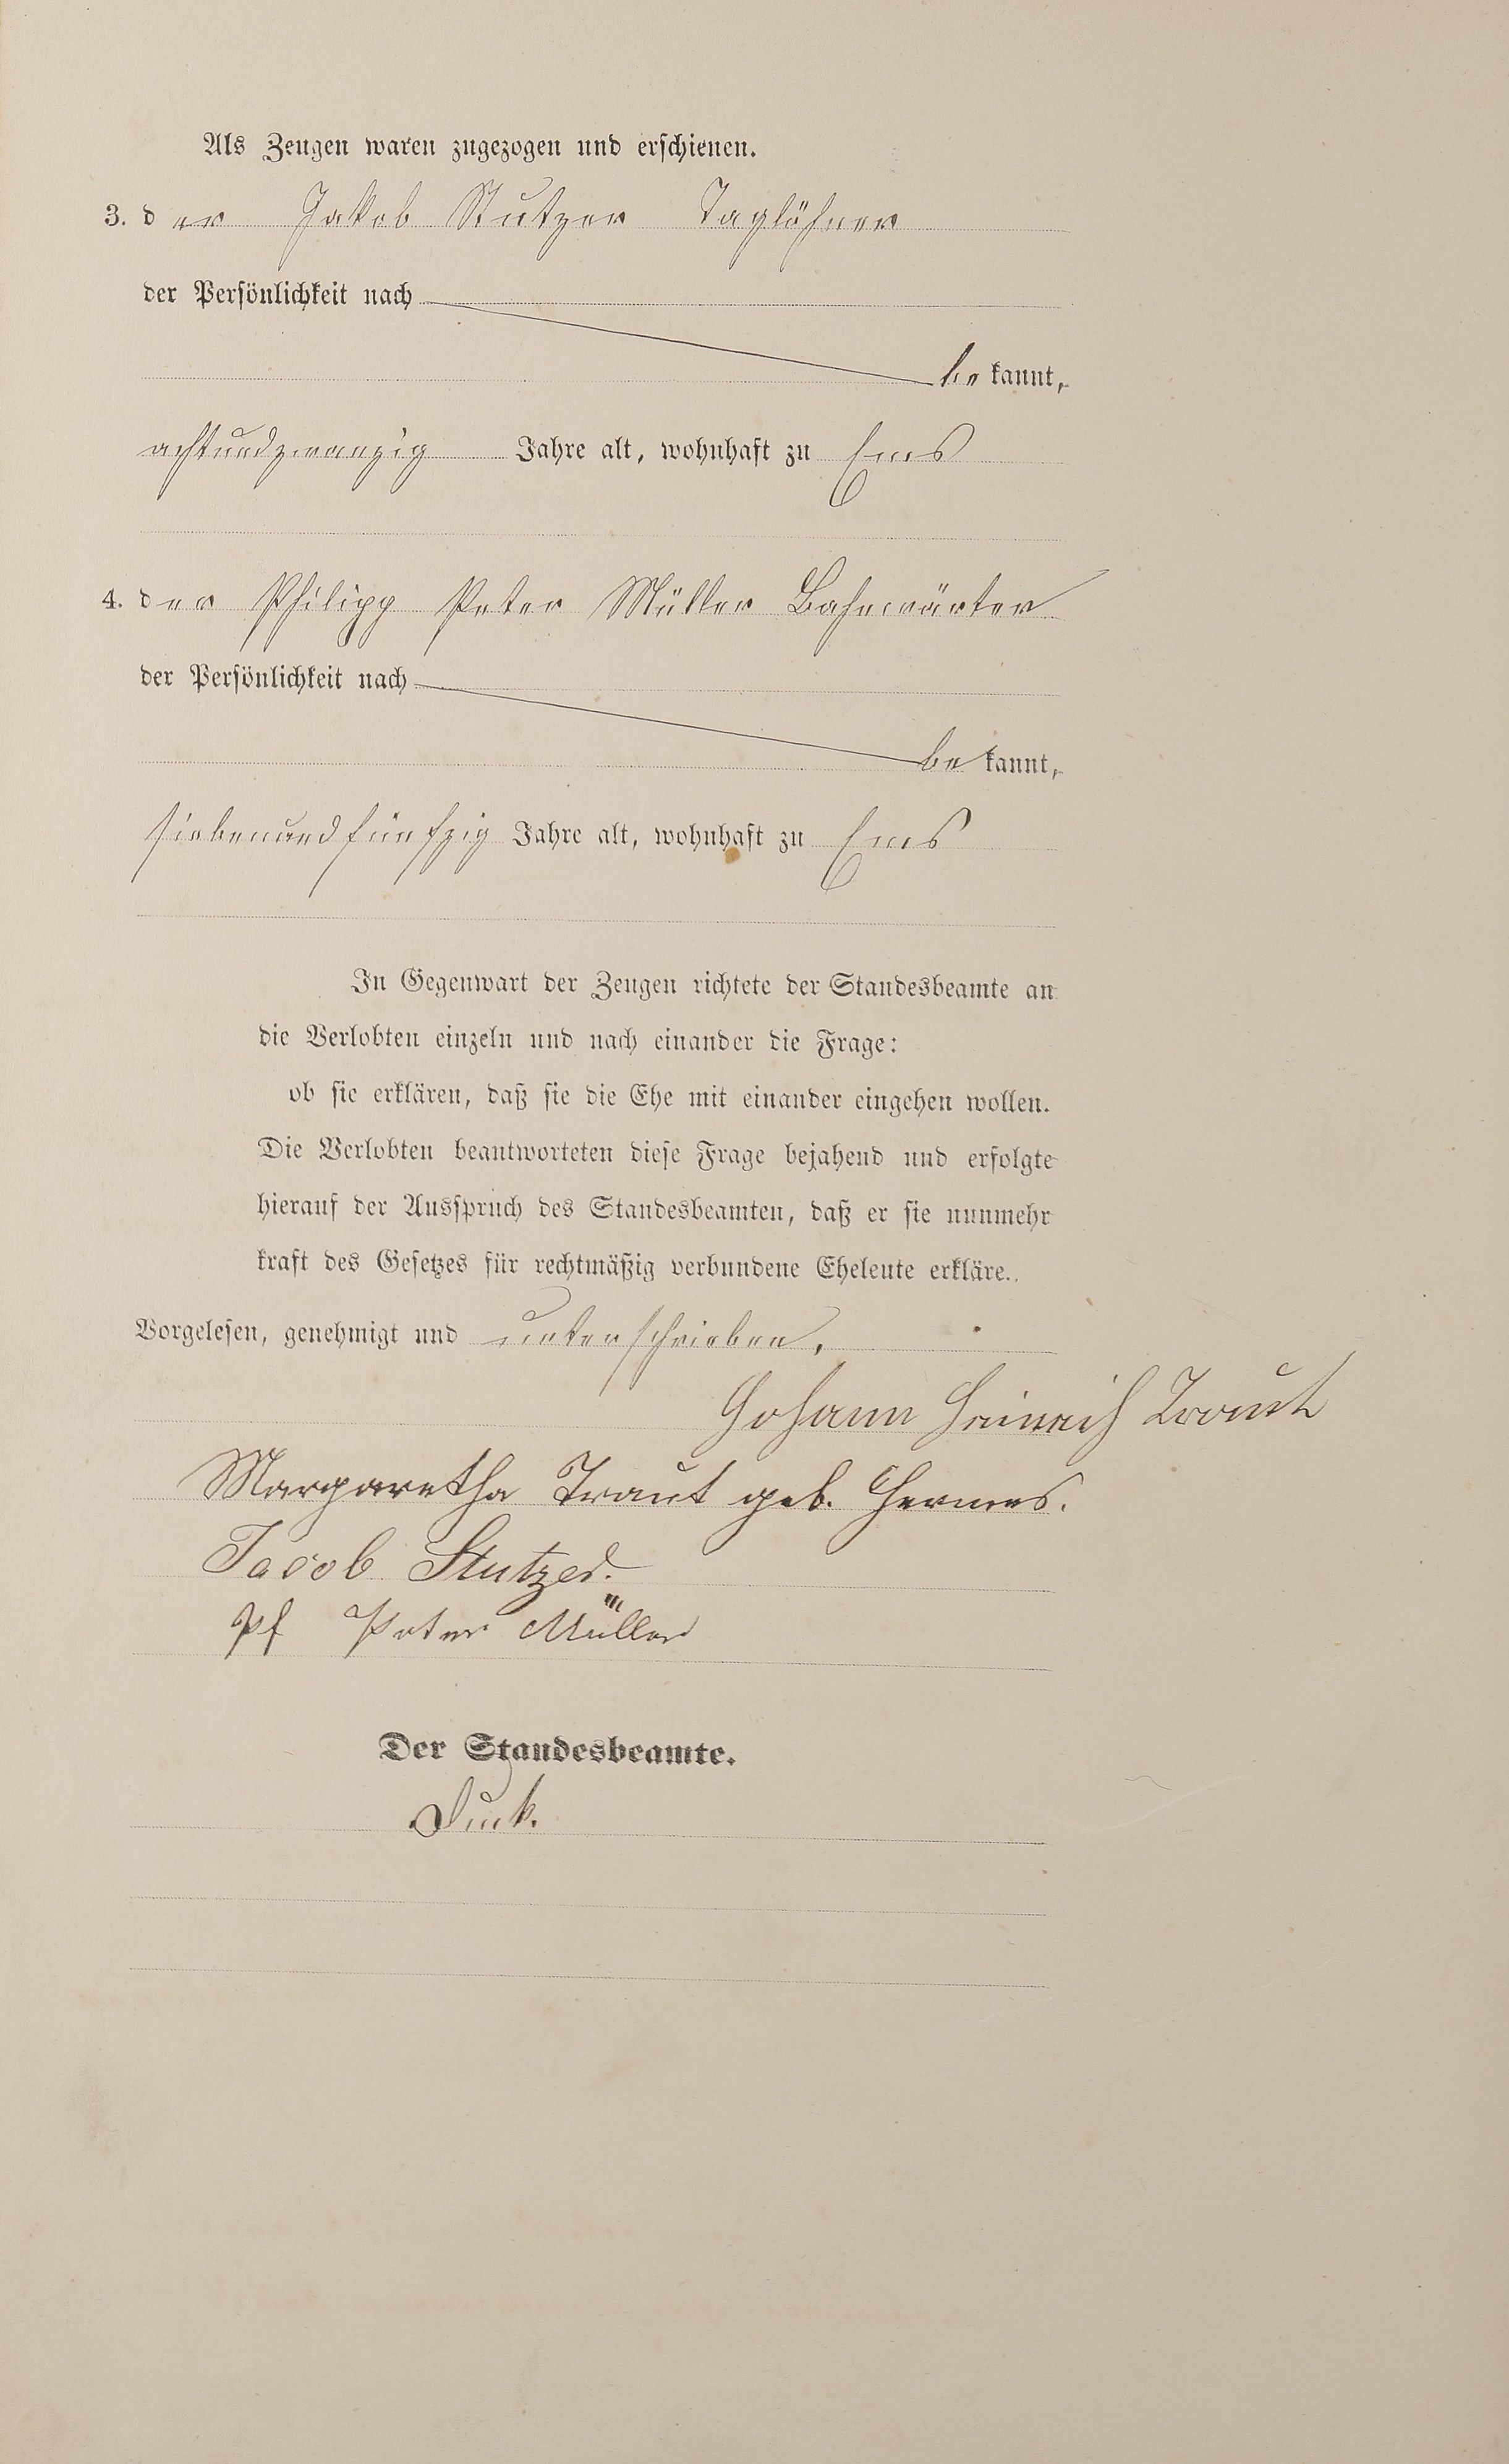 Als Zeugen waren zugezogen und erschienen.
3. der Jakob Stutzer Taglöhner
der Persönlichkeit nach
be kannt,
achtundzwanzig Jahre alt, wohnhaft zu Ems
4. der Philipp Peter Müller Bahnwärter
der Persönlichkeit nach
be kannt,
siebenundfünfzig Jahre alt, wohnhaft zu Ems
In Gegenwart der Zeugen richtete der Standesbeamte an
die Verlobten einzeln und nach einander die Frage:
ob sie erklären, daß sie die Ehe mit einander eingehen wollen.
Die Verlobten beantworteten diese Frage bejahend und erfolgte
hierauf der Ausspruch des Standesbeamten, daß er sie nunmehr
kraft des Gesetzes für rechtmäßig verbundene Eheleute erkläre.
Vorgelesen, genehmigt und unterschrieben.
Johann Heinrich Traut
Margaretha Traut geb. Hermes.
Jacob Stutzer.
Pf Peter Müller
Der Standesbeamte.